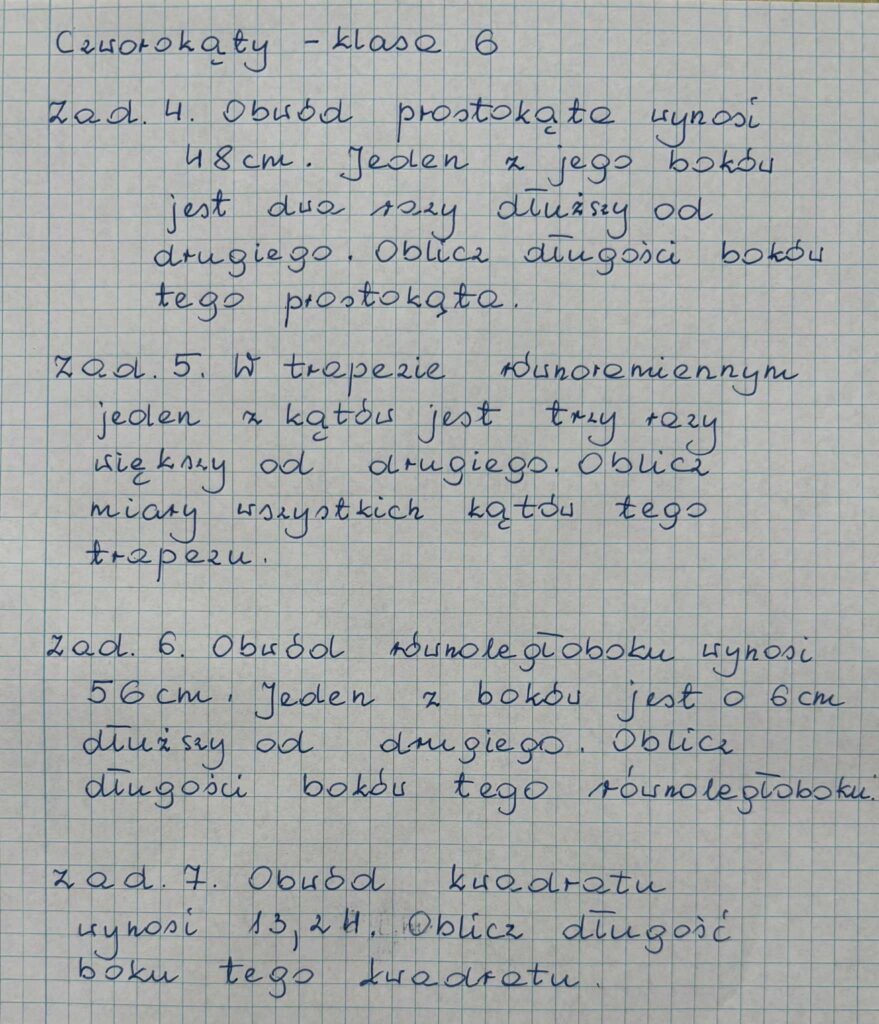 Czworokąty - klasa 6
Zad. 4. Obwód prostokąta wynosi
48 cm. Jeden z jego boków
jest dwa razy dłuższy od
drugiego. Oblicz długości boków
tego prostokąta.
Zad. 5. W trapezie równoramiennym
jeden z kątów jest trzy razy
większy od drugiego. Oblicz
miary wszystkich kątów tego
trapezu.
Zad. 6. Obwód równoległoboku wynosi
56 cm. Jeden z boków jest o 6 cm
dłuższy od drugiego. Oblicz
długości boków tego równoległoboku.
Zad. 7. Obwód kwadratu
wynosi 13,24. Oblicz długość
boku tego kwadratu.